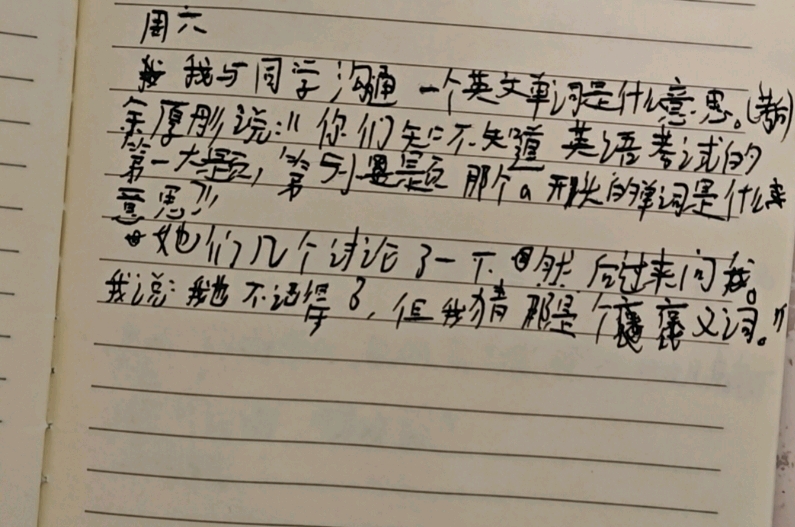 周六
我与同学沟通一个英文单词是什么意思。
说:"你们知不知道英语考试的
第一大题,第5小题 那个a开头的单词是什么
意思?"
她们几个讨论了一下 然后过来问我。
我说:我也不记得了,但我猜那是个褒义词。"